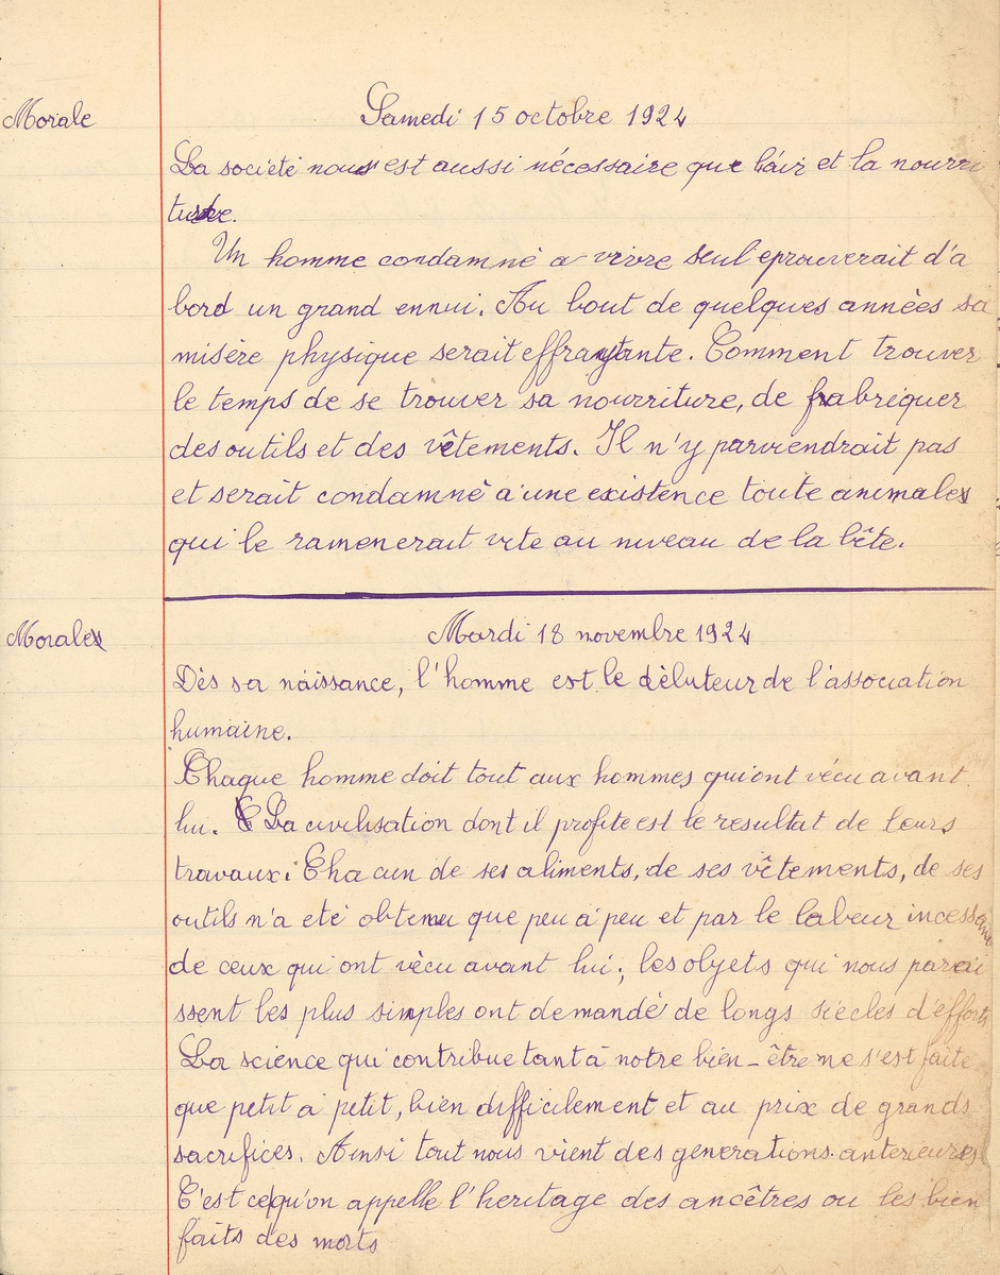 Morale
Samedi 15 octobre 1924
La société nous est aussi nécessaire que l'air et la nourri
ture.
Un homme condamné a vivre seul eprouverait d'a
bord un grand ennui. Au bout de quelques années sa
misère physique serait effrayante. Comment trouver
le temps de se trouver sa nourriture, de fabriquer
des outils et des vêtements. Il n'y parviendrait pas
et serait condamné a une existence toute animale
qui le ramenerait vite au niveau de la bête.
Morale
Mardi 18 novembre 1924
Dès sa naissance, l'homme est le débuteur de l'association
humaine.
Chaque homme doit tout aux hommes qui ont vécu avant
lui. La civilisation dont il profite est le resultat de leurs
travaux. Chacun de ses aliments, de ses vêtements, de ses
outils n'a eté obtenu que peu à peu et par le labeur incessant
de ceux qui ont vècu avant lui; les objets qui nous parai
ssent les plus simples ont demandé de longs siècles d'efforts
La science qui contribue tant à notre bien-être ne s'est faite
que petit à petit, bien difficilement et au prix de grands
sacrifices. Ainsi tout nous vient des generations anterieures
C'est ce qu'on appelle l'heritage des ancêtres ou les bien
faits des morts